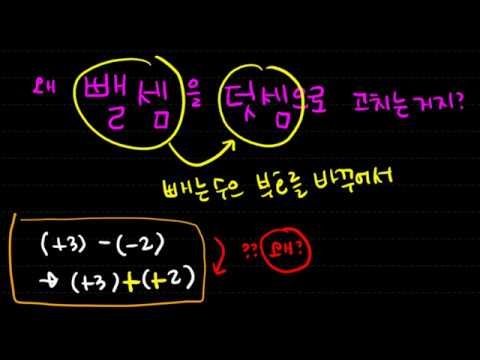 왜 뺄셈을 덧셈으로 고치는거지?
빼는수의 부호를 바꾸어서
(+3) -(-2)
→ (+3)+(+2)
?? 왜?